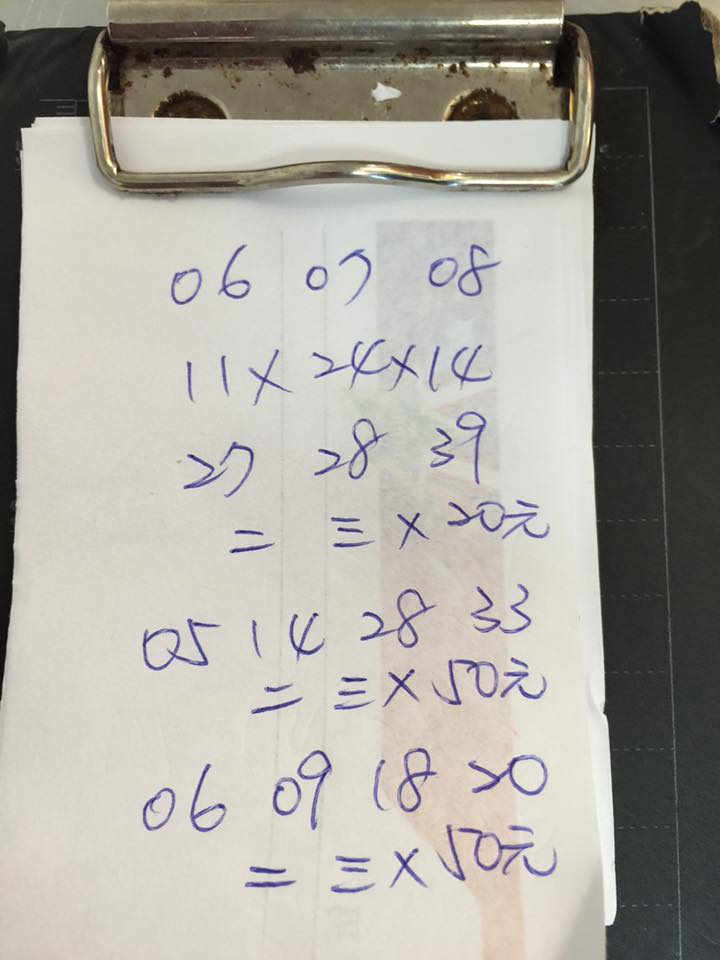 06 07 08
11 × 24 × 14
27 28 39
二 三 × 20元
05 14 28 33
二 三 × 50元
06 09 18 20
二 三 × 50元